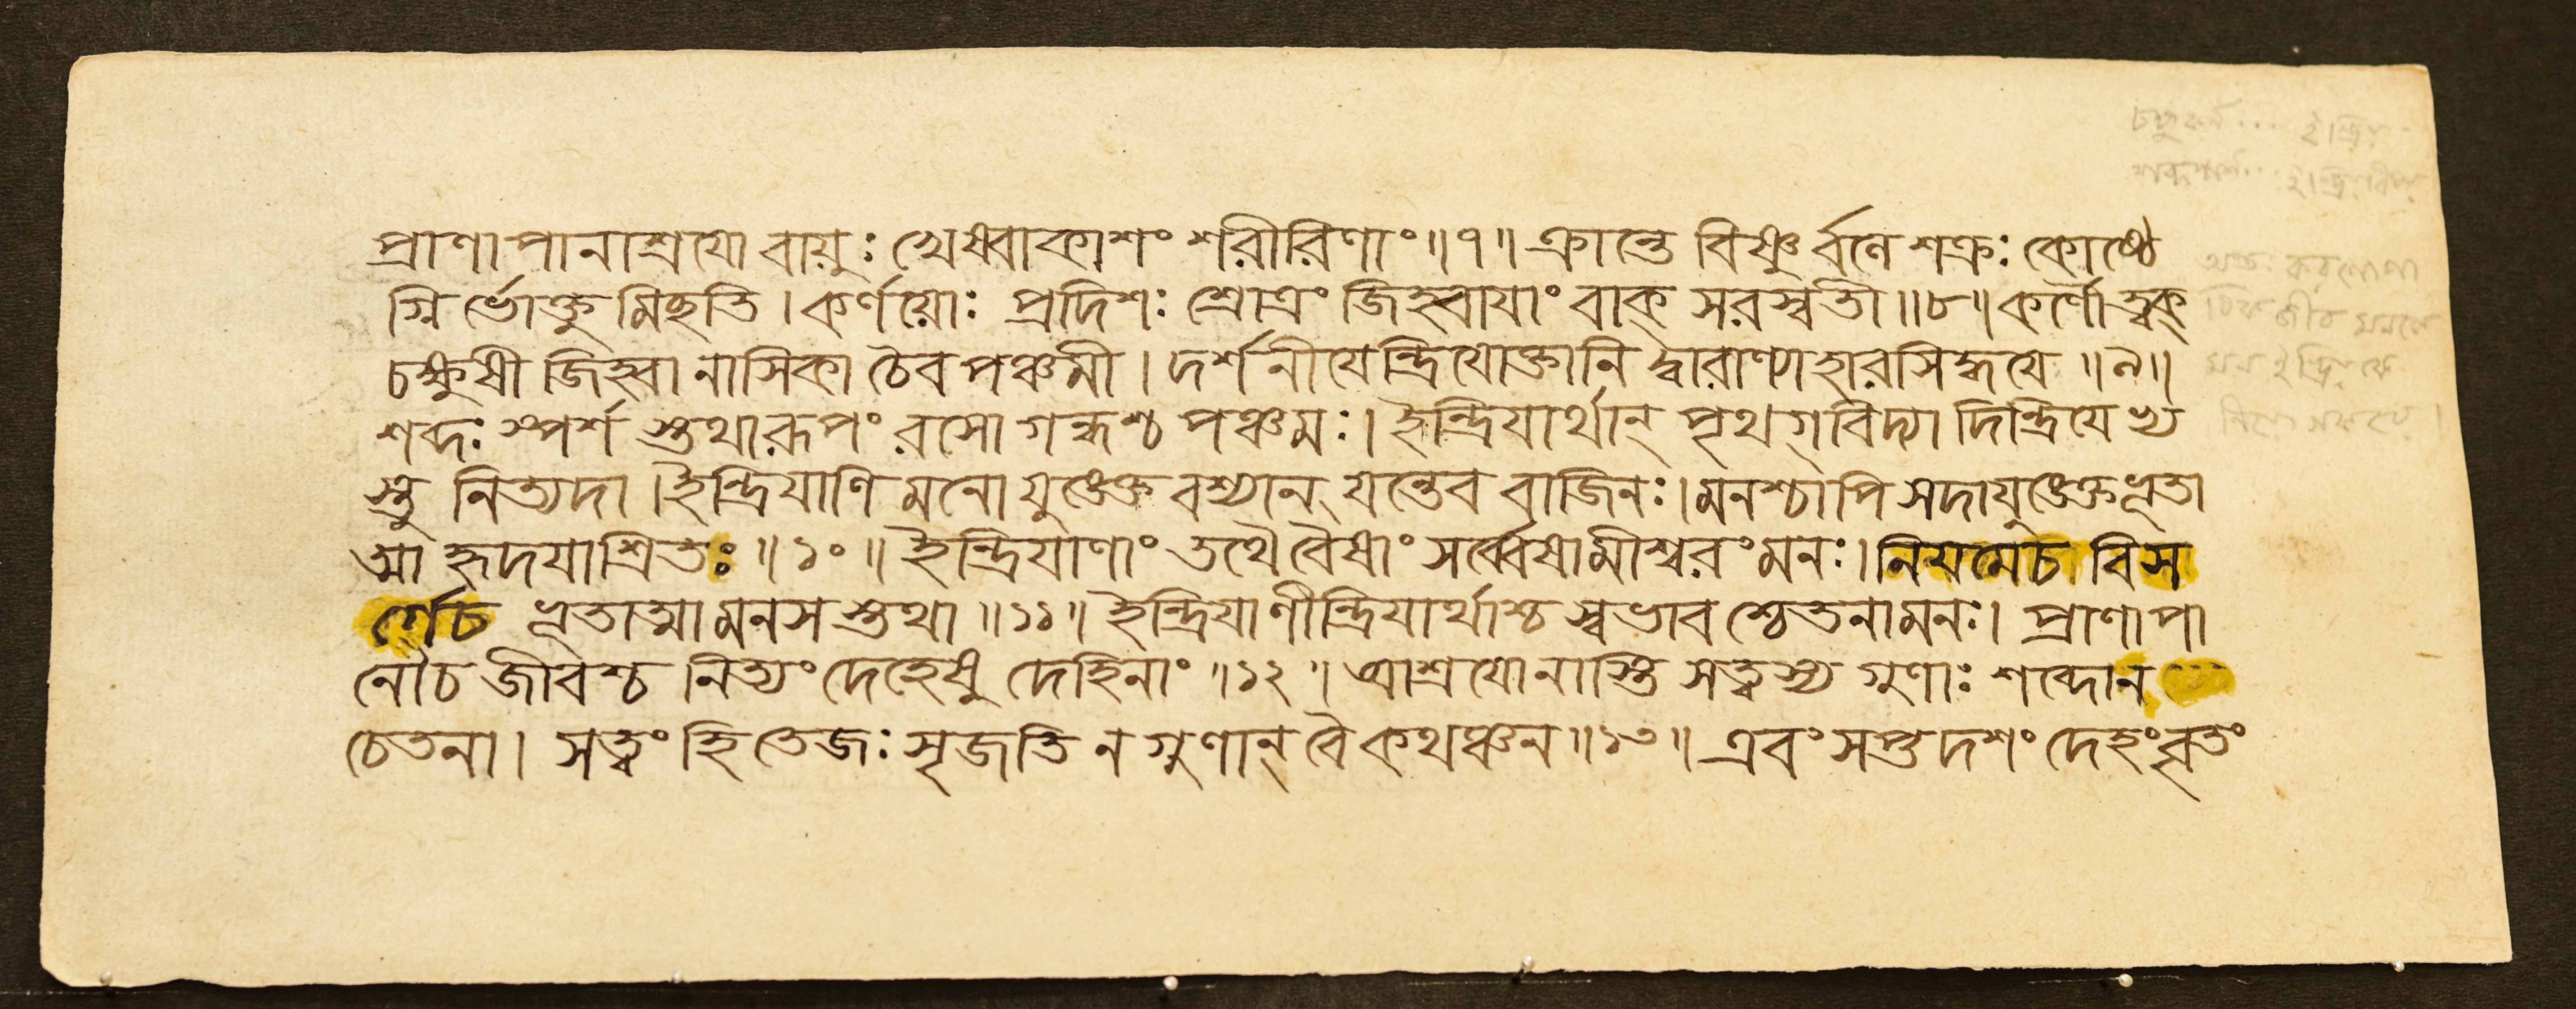 প্রাণাপানাশ্রযো বাযু়ঃ খেষ্বাকাশং শরীরিণাং॥৭॥ ক্রান্তে বিষ্ণুর্বলে শক্রঃ কোষ্ঠে
গ্নি র্ভোক্তু মিছতি। কর্ণয়োঃ প্রদিশঃ শ্রোত্রং জিহ্বাযাং বাক্ সরস্বতী॥৮॥ কর্ণৌ ত্বক্
চক্ষুষী জিহ্বা নাসিকা চৈব পঞ্চমী। দর্শনীযেন্দ্রিযোক্তানি দ্বারাণ্যাহারসিদ্ধযে॥৯॥
শব্দঃ স্পর্শ স্তুথারূপং রসো গন্ধশ্চ পঞ্চমঃ। ইন্দ্রিযার্থান্ পৃথগ্বিদ্যা দিন্দ্রিযেভ্য
স্তু নিত্যদা। ইন্দ্রিযাণি মনো যুঙ্ক্তে বশ্যান্ যন্তেব বাজিনঃ। মনশ্চাপি সদাযুঙ্ক্তে ভূতা
ত্মা হৃদযাশ্রিতঃ॥১০॥ ইন্দ্রিযাণাং তথৈবৈষাং সর্ব্বেষামীশ্বরং মনঃ। নিয়মেচ বিস
র্গেচ ভূতাত্মা মনস স্তুথা॥১১॥ ইন্দ্রিযাণীন্দ্রিযার্থাশ্চ স্বভাব শ্চেতনামনঃ। প্রাণাপা
নৌচ জীবশ্চ নিত্যং দেহেষু দেহিনাং॥১২॥ আশ্রযোনাস্তি সত্ত্বস্য গুণাঃ শব্দোন
চেতনা। সত্ত্বং হি তেজঃ সৃজতি ন গুণান্ বৈ কথঞ্চন॥১৩॥ এবং সপ্তদশং দেহং বৃতং